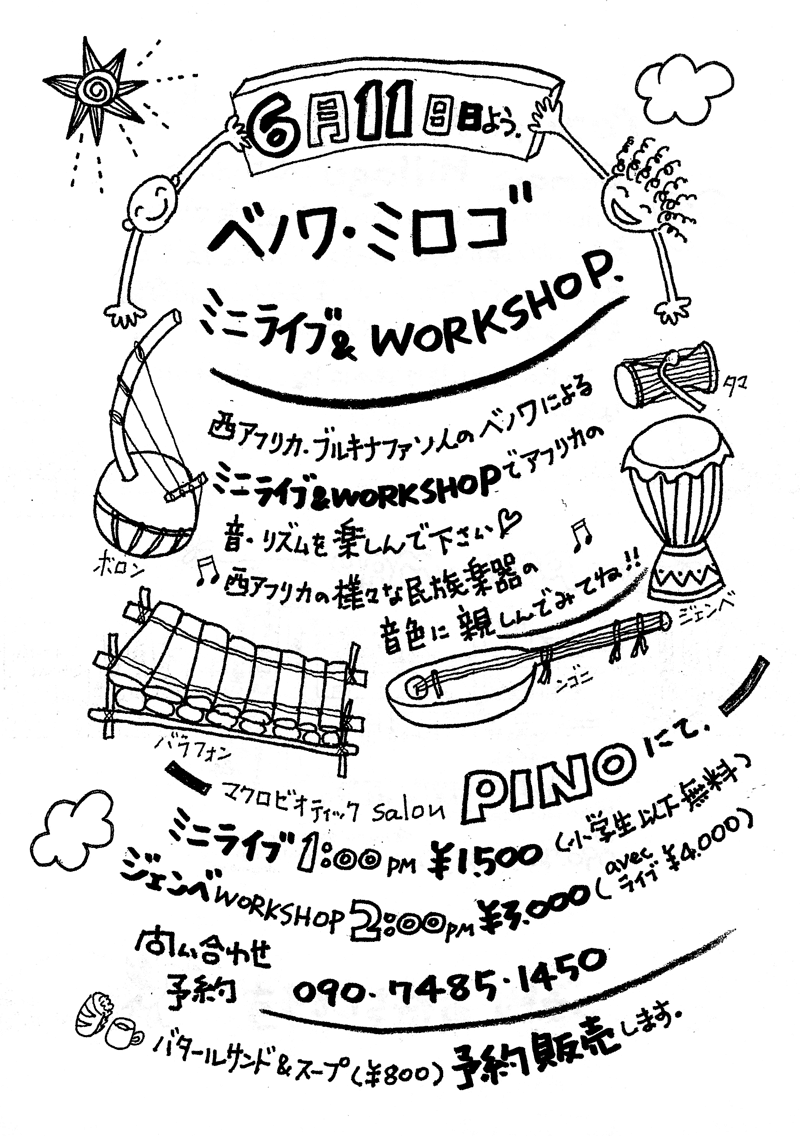 6月11日日よう.
ベノワ・ミロゴ
ミニライブ& WORKSHOP.
タマ
西アフリカ・ブルキナファソ人のベノワによる
ミニライブ&WORKSHOPでアフリカの
音・リズムを楽しんで下さい♡
ボロン
西アフリカの様々な民族楽器の
音色に親しんでみてね!!
ジェンベ
ンゴニ
バラフォン
マクロビオティック salon PINOにて.
ミニライブ 1:00PM ¥1.500 (小学生以下無料)
ジェンベWORKSHOP 2:00PM ¥3.000 (avecライブ ¥4.000)
問い合わせ
予約 090・7485・1450
バタールサンド&スープ(¥800) 予約販売します.